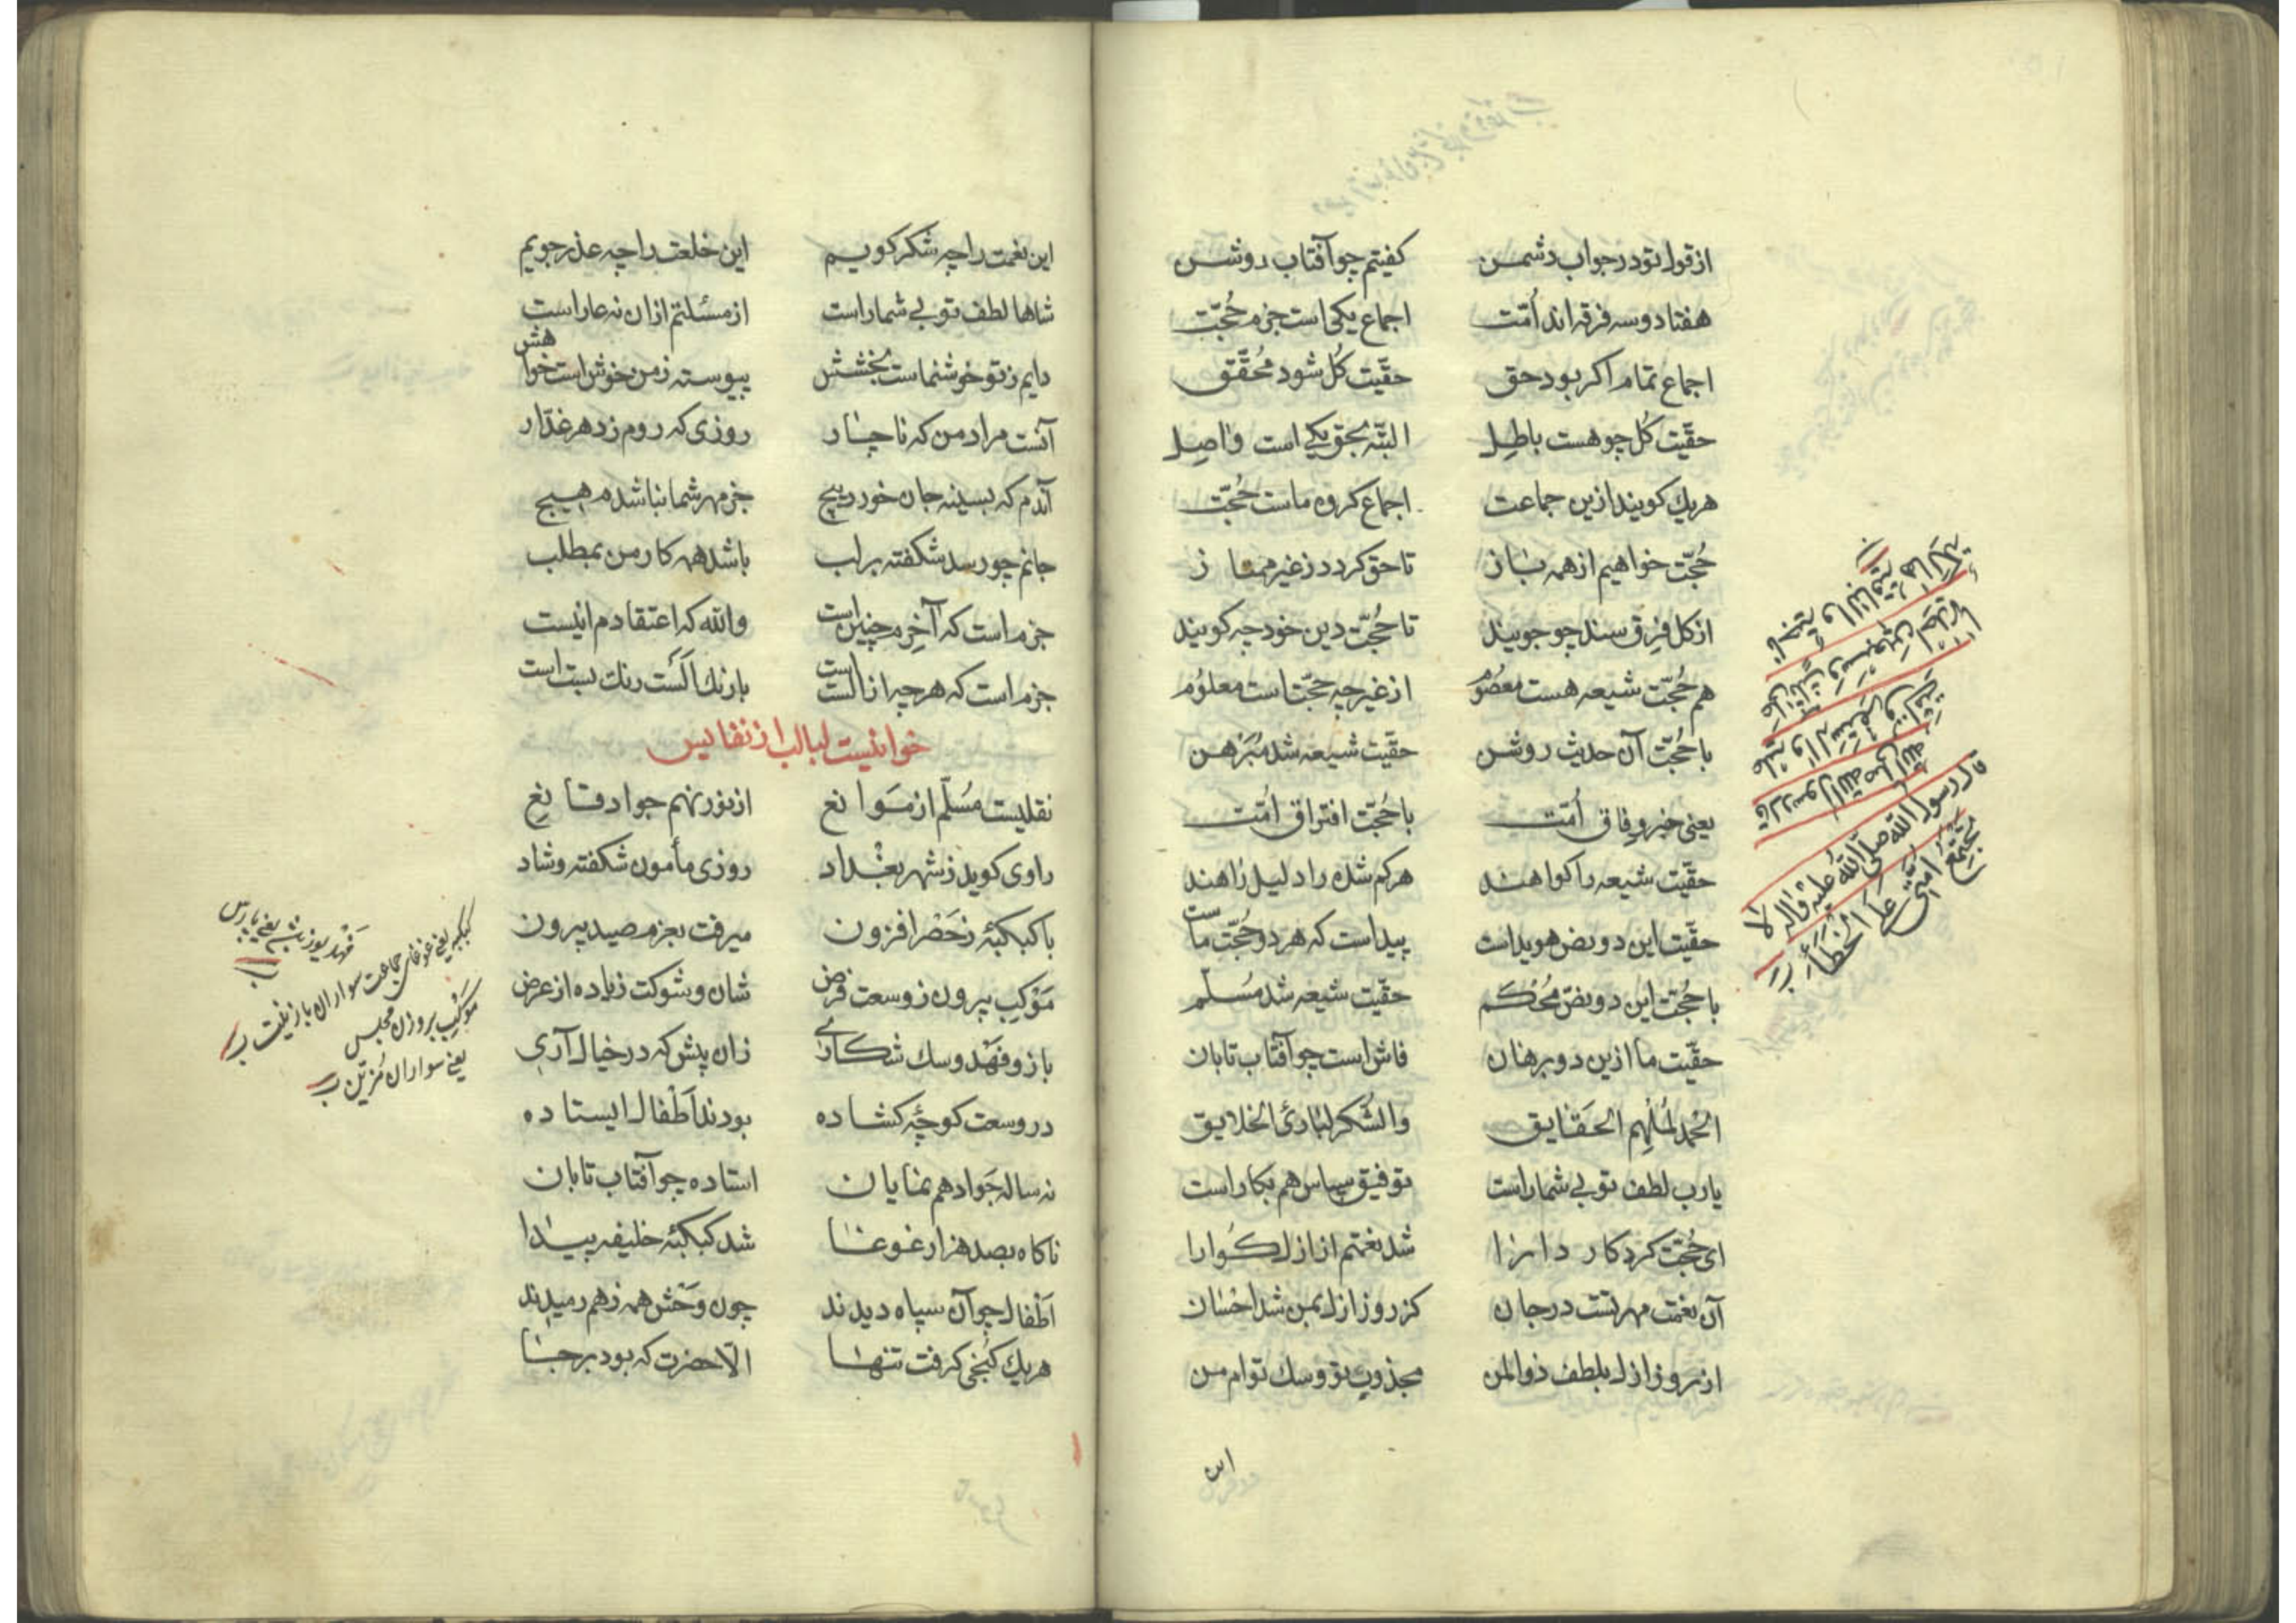 از قول تو در جواب دشمن کفیتم چو آفتاب روشن
هفتاد و سه فرقه اند اُمّت اجماع یکی است جزم حُجّت
اجماع تمام اکر بود حق حقّیت کُل شود مُحقّق
حقّیت کُل چو هست باطِل البتّه بحق یکی است واصِل
هریك کویند ازین جماعت اجماع کروه ماست حُجّت
حُجّت خواهیم از همه باز تا حق کردد ز غیر ممتاز
از کل فِرِق سند چو جویند تا حُجّت دین خود چه کویند
هم حُجّت شیعه هست معصُوم از غیر چه حجّتاست معلوُم
با حُجّت آن حدیث روشن حقّیت شیعه شد مُبَرْهن
یعنی خبر وِفاق اُمّت با حُجّت افتراق اُمّت
حقّیت شیعه را کواهند هر کم شده را دلیل راهند
حقّیت این دو نص هویداست پیداست که هر دو حُجّت ماست
با حُجّت این دو نصّ مُحْکم حقّیت شیعه شد مُسَلّم
حقّیت ما ازین دو برهان فاش است چو آفتاب تابان
الحْمد لمُلْهِم الحَقایق والشُکر لهادئ الخلایق
یارب لطف تو بی شماراست توفیق سپاس هم بکاراست
ای حُجّت کردکار دارا شد نعمتم از ازل کَوارا
آن نعمت مهر تست در جان کز روز ازل بمن شد احسان
از روز ازل بلطف ذوالمن مجذوب تو و سك توام من
قال رسول الله صلّی اللهُ علیْه وَاله لا
تجتمعُ اُمّتی علَی الخَطاَء
این
این نعمت را چه شکر کوییم این خلعت را چه عذر جویم
شاها لطف تو بی شماراست از مسئلتم ازان نه عار است
دایم ز تو خوشنماست بخشش پیوسته ز من خوش است خواهش
آنست مراد من که ناچار روزی که روم ز دهر غدّار
آندم که بسینه جان خورد پیچ جز مهر شما نباشدم هیچ
جانم چو رسد شکفته بر لب باشد همه کار من بمطلب
جزم است که آخِرم چنین است والله که اعتقادم اینست
جزم است که هرچه از الست است با رنك اَلَسْت رنك بست است
خوانیست لبالب از نفایس
نقلیست مُسَلّم از مَوانع از نور نهم جواد قانِع
راوی کوید ز شهر بغْداد روزی مأمون شکفته و شاد
با کبکبَهٔ ز حَصْر افزون میرفت بعزم صید بیرون
مَوْکِب بیرون ز وسعت فرض شان و شوکت زیاده از عرض
باز و فهْد و سك شکاری زان پیش که در خیال آری
در وسعت کوچهٔ کشاده بودند اَطْفال ایستاده
نه ساله جَواد هم نمایان استاده چو آفتاب تابان
ناکاه بصد هزار غوغا شد کبکبهٔ خلیفه پیدا
اَطْفال چو آن سپاه دیدند چون وَحْش همه ز هم رمیدند
هریك کُنجی کرفت تنها الّا حضرت که بود بر جا
کبکبه یعنی غوغای جماعت سواران با زینت
مَوْکِب بر وزن مجلس
یعنی سواران مُزیّن